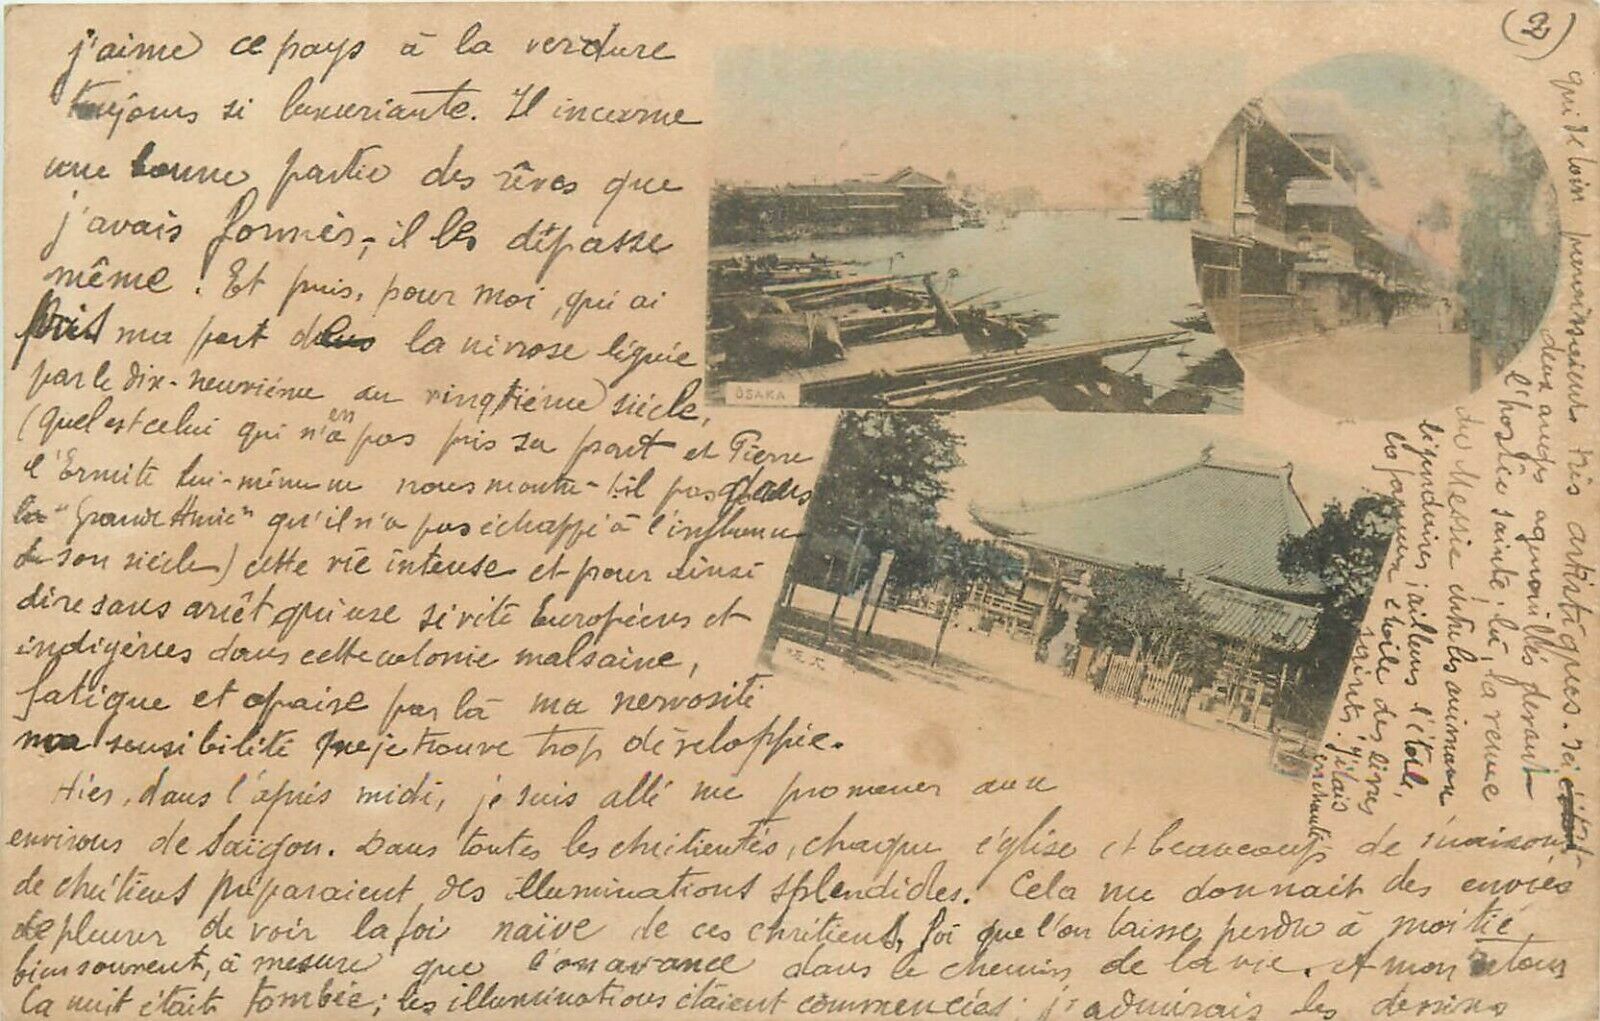 (2)
j'aime ce pays à la verdure
toujours si luxuriante. Il incarne
une bonne partie des rêves que
j'avais formés, il les dépasse
même. Et puis, pour moi, qui ai
pris ma part dans la nivrose liguée
par le dix-neuvième au vingtième siècle,
(quel est celui qui n'en a pas pris sa part et Pierre
l'Ermite lui-même ne nous montre-t-il pas dans
la "Grande Amie" qu'il n'a pas échappé à l'influence
de son siècle) cette vie intense et pour ainsi
dire sans arrêt qu'use si vite Européens et
indigènes dans cette colonie malsaine,
fatigue et apaise par là ma nervosité
ma sensibilité que je trouve trop développée.
Hier, dans l'après midi, je suis allé me promener aux
environs de Saïgon. Dans toutes les chrétientés, chaque église et beaucoup de maisons
de chrétiens préparaient des illuminations splendides. Cela me donnait des envies
de pleurer de voir la foi naïve de ces chrétiens, foi que l'on laisse perdre à moitié
bien souvent, à mesure que l'on avance dans le chemin de la vie. A mon retour
la nuit était tombée; les illuminations étaient commencées; j'admirais les dessins
qui de loin paraissaient très artistiques. Ici
deux anges agenouillés devant
l'hostie sainte; là, la venue
du Messie chez les
légendaires; ailleurs l'étoile,
la fameuse étoile des livres
saints. J'étais
enchanté
OSAKA